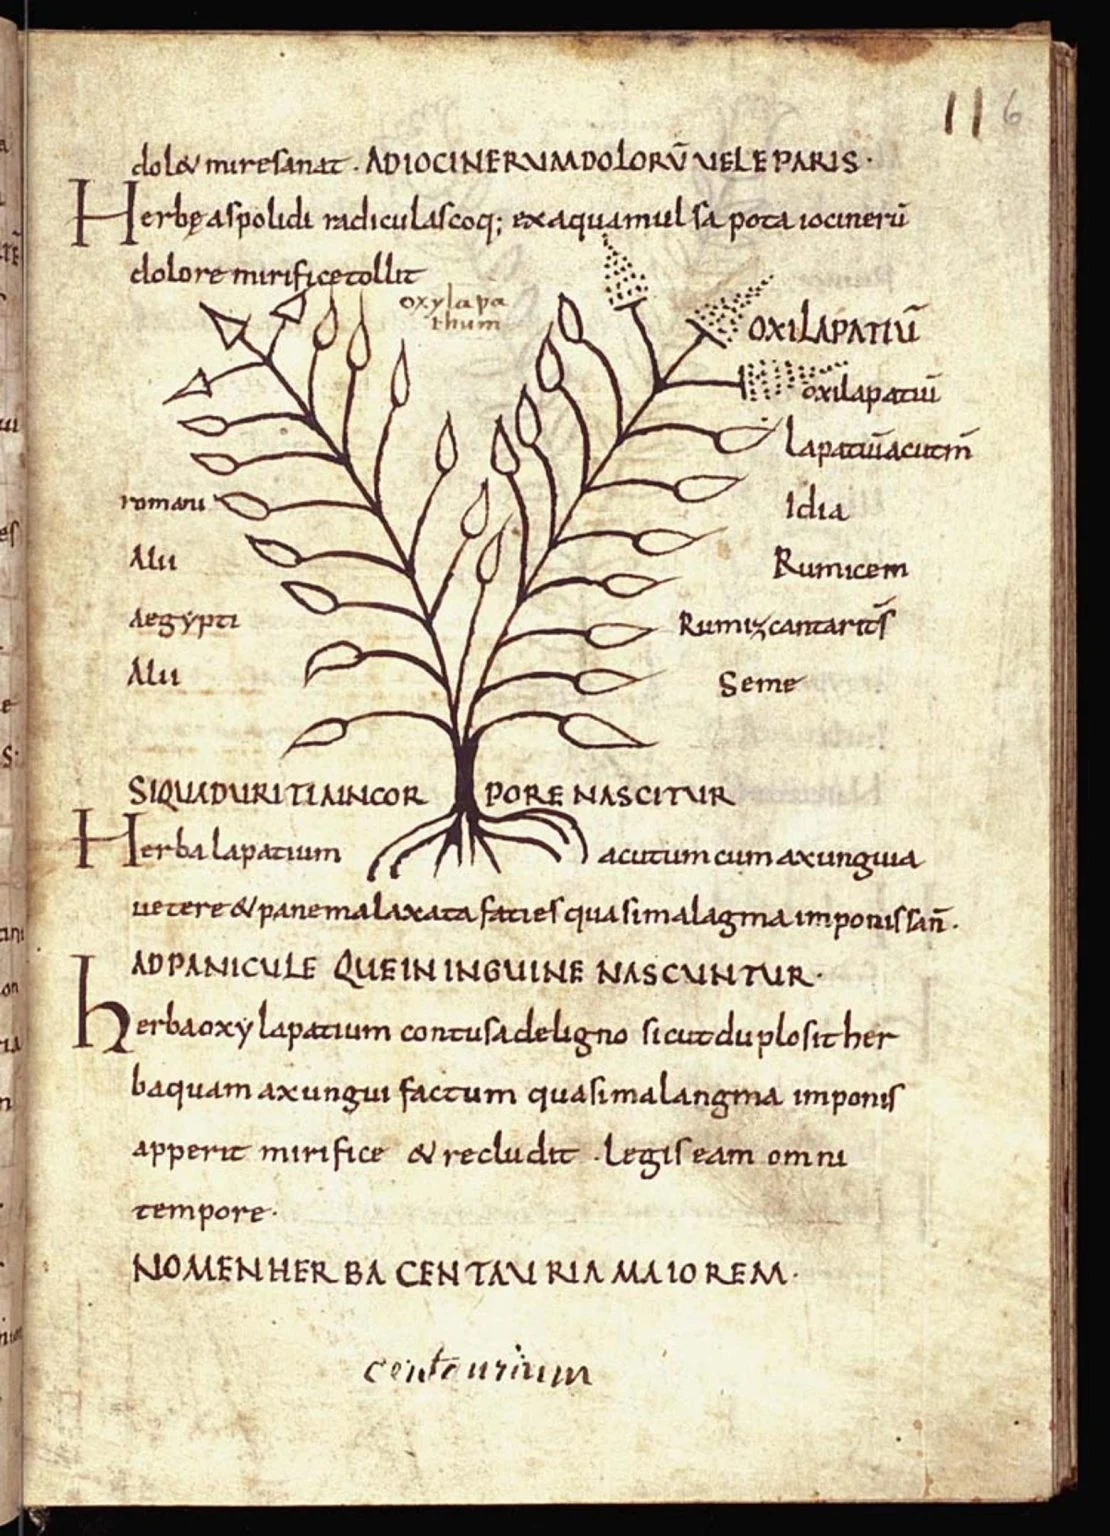 116
dol& mire sanat · AD IOCINERUM DOLORŪ VEL EPARIS ·
Herbę aspolidi radiculas coq; ex aqua mulsa pota iocinerū
dolore mirifice tollit
oxylapa
thum
OXILAPATIŪ
oxilapatiū
Lapatiū acutm̄
romani Idia
Alii Rumicem
Aegypti Rumiz cantarits̄
Alii Seme
SI QUA DURITIA IN CORPORE NASCITUR
Herba lapatium acutum cum axunguia
vetere & pane malaxata faties quasi malagma imponis san̄ ·
AD PANICULE QUE IN INGUINE NASCUNTUR ·
herba oxylapatium contusa de ligno sicut duplo sit her
ba quam axungui factum quasi malangma imponis
apperit mirifice & recludit · Legis eam omni
tempore ·
NOMEN HERBA CENTAURIA MAIOREM ·
centaurium